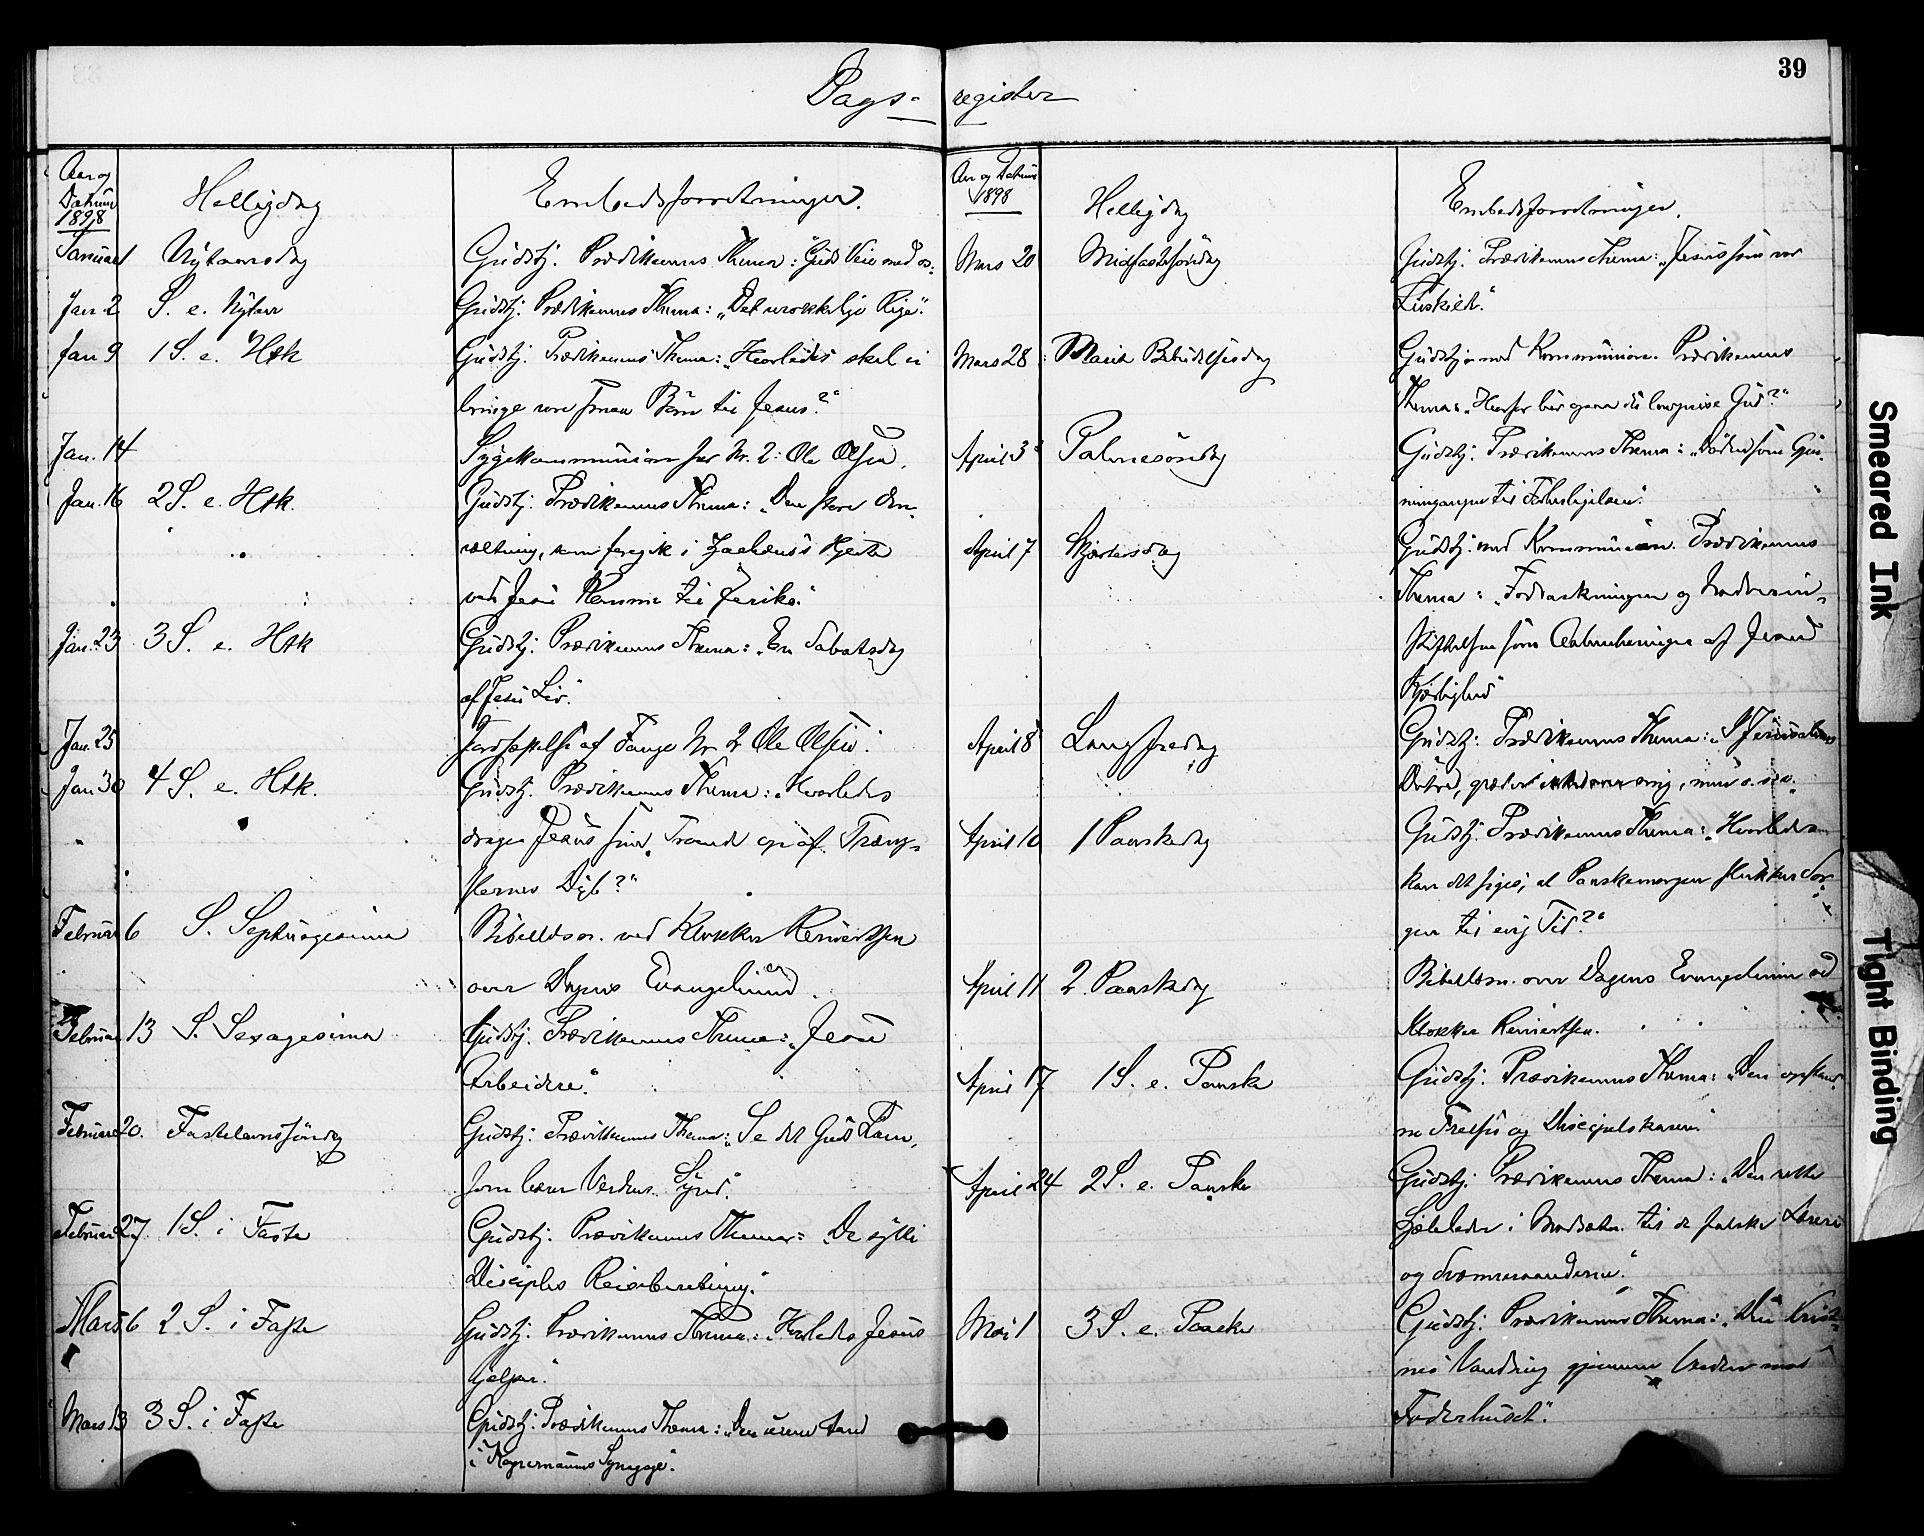 39
Dags-register
Aar og
Datum
1898
Helligdag
Embedsforretninger.
Januar 1 Nytaarsdag Gudstj. Prædikenens Thema: "Guds Veie med os."
Jan. 2 S. e. Nytaar Gudstj. Prædikenens Thema: „Det urokkelige Rige."
Jan 9 1 S. e. H3k Gudstj. Prædikenens Thema: „Hvorledes skal vi
bringe vore smaa Børn til Jesus?"
Jan. 14 Sygekommunion for Nr. 2: Ole Olsen.
Jan. 16 2 S. e. H3k. Gudstj. Prædikenens Thema: „Den store Om-
væltning, som foregik i Zachæus's Hjerte
ved Jesu Komme til Jeriko."
Jan. 23 3 S. e. H3k Gudstj. Prædikenens Thema: „En Sabatsdag
af Jesu Liv."
Jan. 25 Jordfæstelse af Fange Nr 2 Ole Olsen.
Jan 30 4 S. e. H3k. Gudstj. Prædikenens Thema: „Hvorledes
drager Jesus sine Troende op af Træng-
slernes Dyb?"
Februar 6 S. Septuagesima Bibellæsn. ved Klokker Reinertsen
over Dagens Evangelium.
Februar 13 S. Sexagesima Gudstj. Prædikenens Thema: „Jesu
Arbeidere."
Februar 20. Fastelavnssøndag Gudstj. Prædikenens Thema: „Se det Guds Lam,
som bærer Verdens Synd."
Februar 27. 1 S. i Faste Gudstj. Prædikenens Thema: „De sytti
Disciples Reiseberetning."
Mars 6 2 S. i Faste Gudstj. Prædikenens Thema: „Hvorledes Jesus
hjelper."
Mars 13 3 S. i Faste Gudstj. Prædikenens Thema: „Den urene Aand
i Kapernaums Synagoge."
Aar og Datum
1898
Helligdag
Embedsforretninger.
Mars 20 Midfastesøndag Gudstj. Prædikenens Thema: „Jesus som vor
Livskilde."
Mars 28 Mariæ Bebudelsesdag Gudstj. med Kommunion. Prædikenens
Thema: „Hvorfor bør ogsaa du lovprise Gud?"
April 3 Palmesøndag Gudstj. Prædikenens Thema: „Døden som Gjen-
nemgangen til Forherligelsen."
April 7 Skjærtorsdag Gudstj. med Kommunion. Prædikenens
Thema: „Fodvaskningen og Nadverind-
stiftelsen som Aabenbaringer af Jesu
Kjærlighed"
April 8 Langfredag Gudstj. Prædikenens Thema: „I Jerusalems
Døtre, græder ikke over mig, men o. s. v.
April 10 1 Paaskedag Gudstj. Prædikenens Thema: „Hvorledes
kan det siges, at Paaskemorgen slukker Sor-
gen til evig Tid?"
April 11 2. Paaskedag Bibellæsn. over Dagens Evangelium ved
Klokker Reinertsen.
April 17 1 S. e. Paaske Gudstj. Prædikenens Thema: „Den opstand-
ne Frelser og Disciipelskaren."
April 24 2 S. e. Paaske Gudstj. Prædikenens Thema: „Den rette
Sjæleleder i Modsætn. til de falske Lærere
og Sværmeraanderne."
Mai 1 3 S. e. Paaske Gudstj. Prædikenens Thema: „Den Krist-
nes Vandring gjennem Verden mod
Faderhuset."
Smeared Ink
Tight Binding